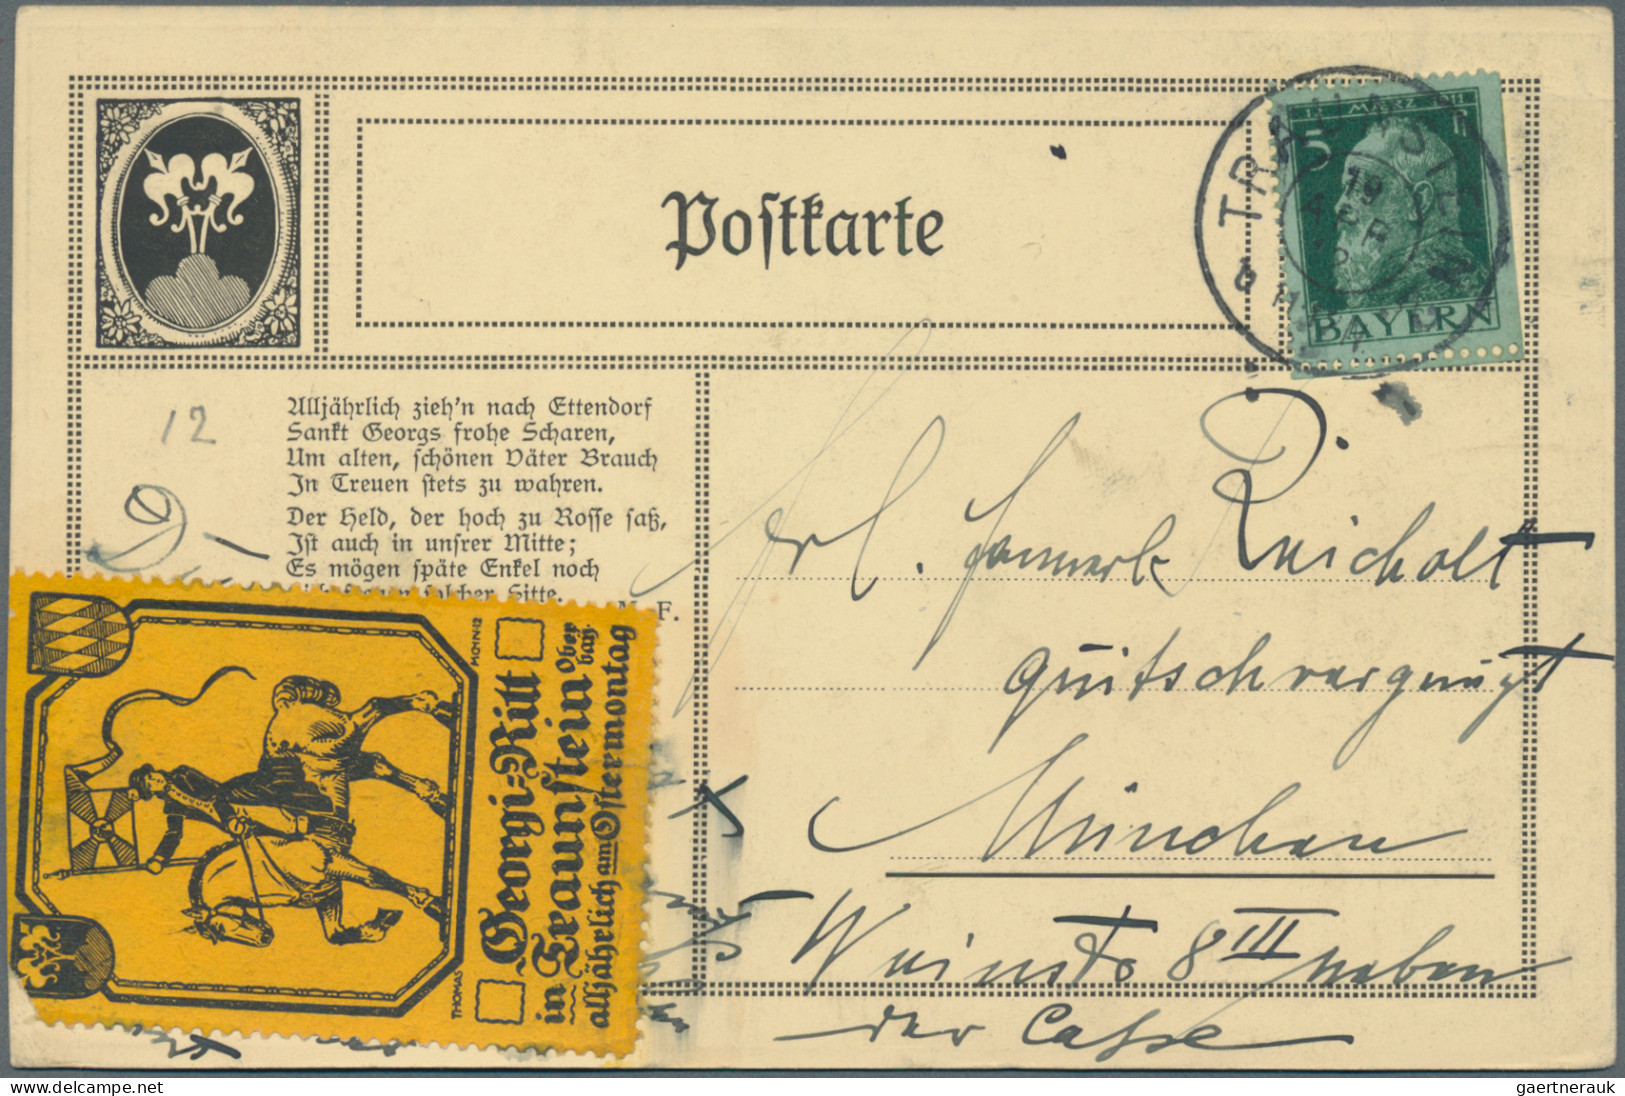 Postkarte
1. MÄRZ 1911
5
BAYERN
TRAUNSTEIN
19
APR
12
Alljährlich zieh'n nach Ettendorf
Sankt Georgs frohe Scharen,
Um alten, schönen Väter Brauch
In Treuen stets zu wahren.
Der Held, der hoch zu Rosse saß,
Ist auch in unsrer Mitte;
Es mögen späte Enkel noch
solcher Sitte.
M. F.
Georgi-Ritt
in Traunstein Ober bay.
alljährlich am Ostermontag
THOMAS
MCHN·12
Frl. Reicholt
quitschvergnügt
München
Weinstr 8 III neben
der Casse
gaertnerauk
www.delcampe.net